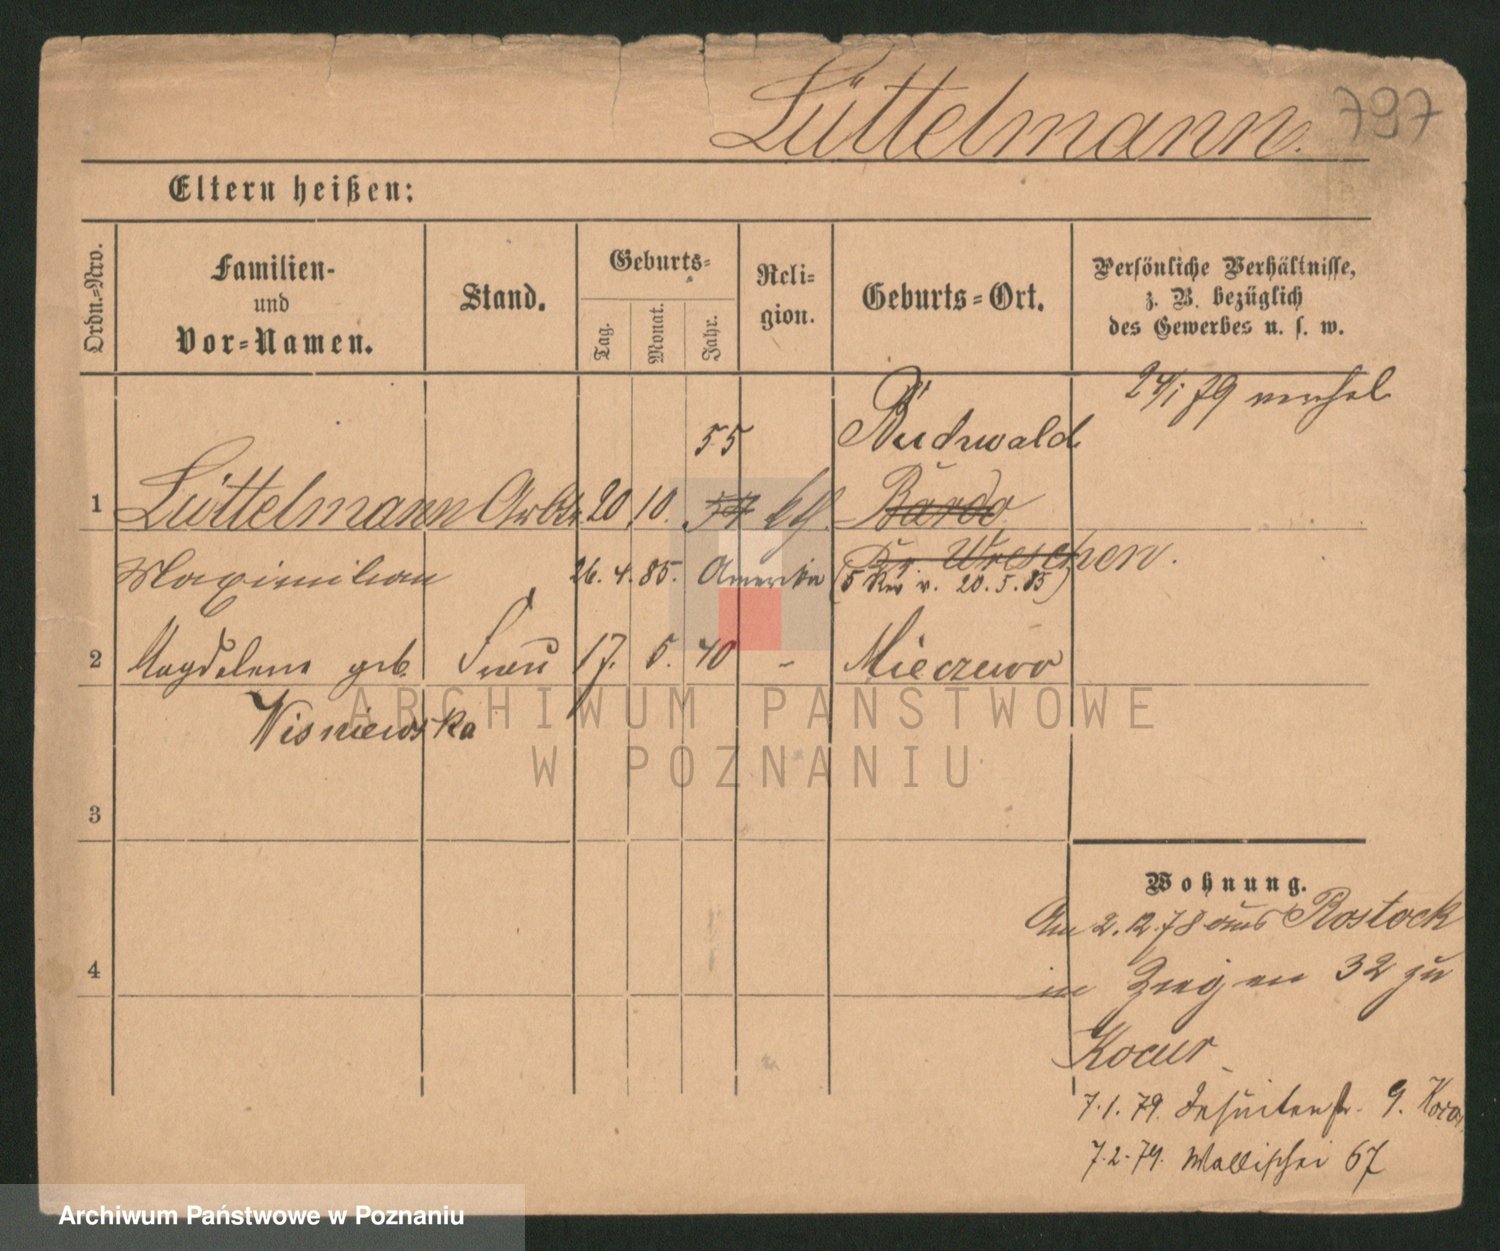 Lüttelmann. 797
Eltern heißen:
Ordn.-Nro.
Familien-
und
Vor-Namen.
Stand.
Geburts-
Tag.
Monat.
Jahr.
Reli-
gion.
Geburts-Ort.
Persönliche Verhältnisse,
z. B. bezüglich
des Gewerbes u. s. w.
24/1 79
55 Buchwald
1 Lüttelmann Arbtr 20 10. 54 Bardo
Maximilian 26. 4. 85. Amerika Kr. Wreschen.
(5 Rev v. 20.5.85)
2 Magdalena geb. Frau 17. 5. 40 - Mieczewo
Wisniewska
3
4
Wohnung.
Am 2.12.78 aus Rostock
in Ziegen 32 zu
Kocur
7.1.79. Jesuitenstr. 9.
7.2.79. Wallischei 67
ARCHIWUM PAŃSTWOWE
W POZNANIU
Archiwum Państwowe w Poznaniu